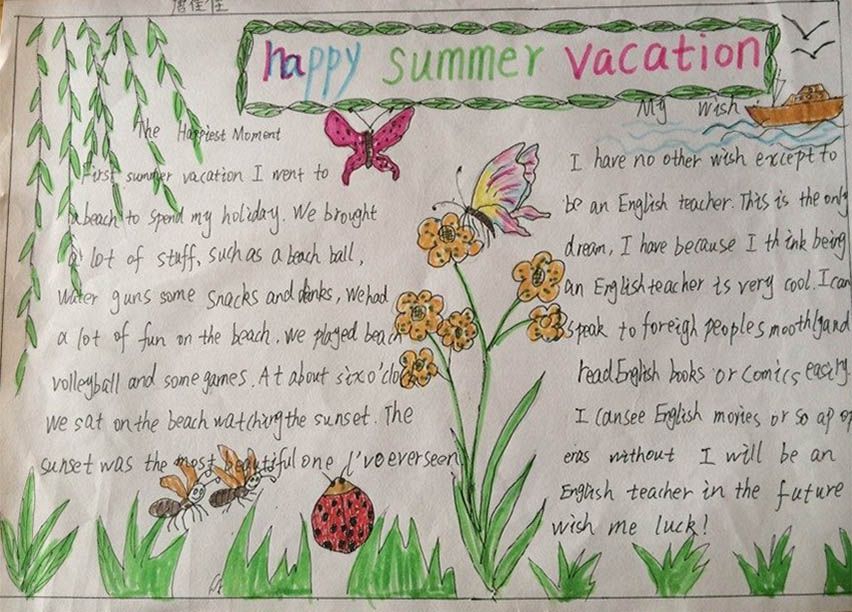 唐佳佳
happy summer vacation
The Happiest Moment
First summer vacation I went to
a beach to spend my holiday. We brought
a lot of stuff, such as a beach ball,
Water guns some snacks and drinks, We had
a lot of fun on the beach. We played beach
volleyball and some games. At about six o'cloc
We sat on the beach watching the sunset. The
sunset was the most beautiful one I'vo ever seen
My Wish
I have no other wish except to
be an English teacher. This is the only
dream, I have because I think being
an English teacher is very cool. I can
speak to foreigh people smoothly and
read English books or comics easily.
I can see English movies or so ap op
eras without I will be an
English teacher in the future
wish me luck!